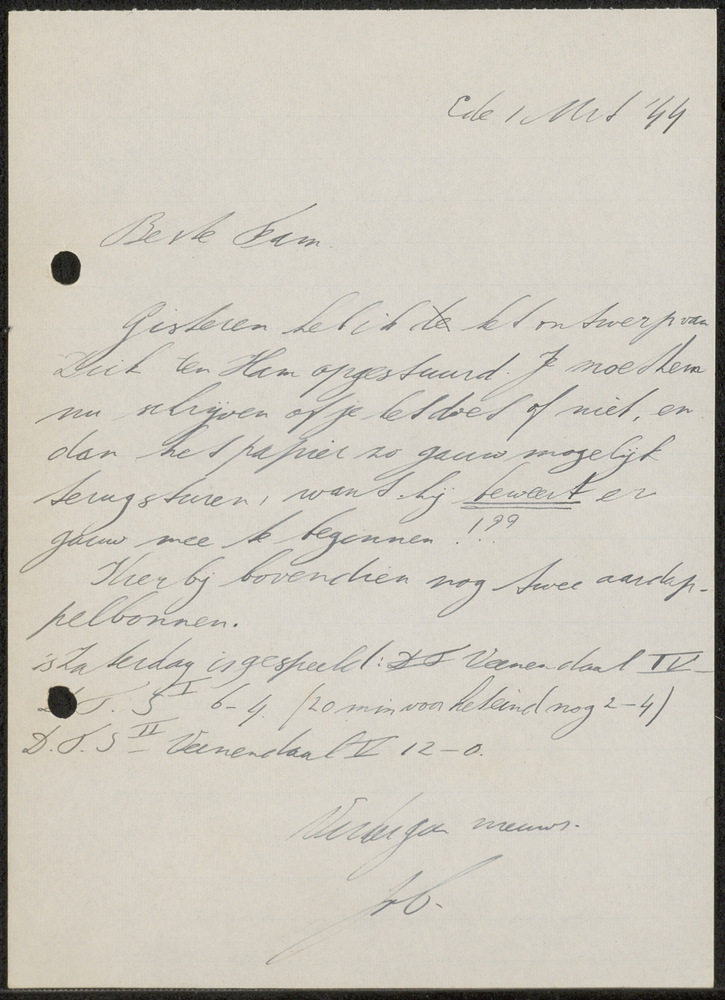 Ede 1 Mrt '44
Beste Fam.
Gisteren heb ik te het ontwerp van
Dick ten Ham opgestuurd. Je moet hem
nu schrijven of je het doet of niet, en
dan het papier zo gauw mogelijk
terugsturen, want hij beweert er
gauw mee te beginnen !??
Hierbij bovendien nog twee aardap-
pelbonnen.
Zaterdag is gespeeld: Veenendaal IV –
D.T.S I 6–4 (20 min voor het eind nog 2–4)
D.T.S II – Veenendaal V 12–0.
Verder geen nieuws.